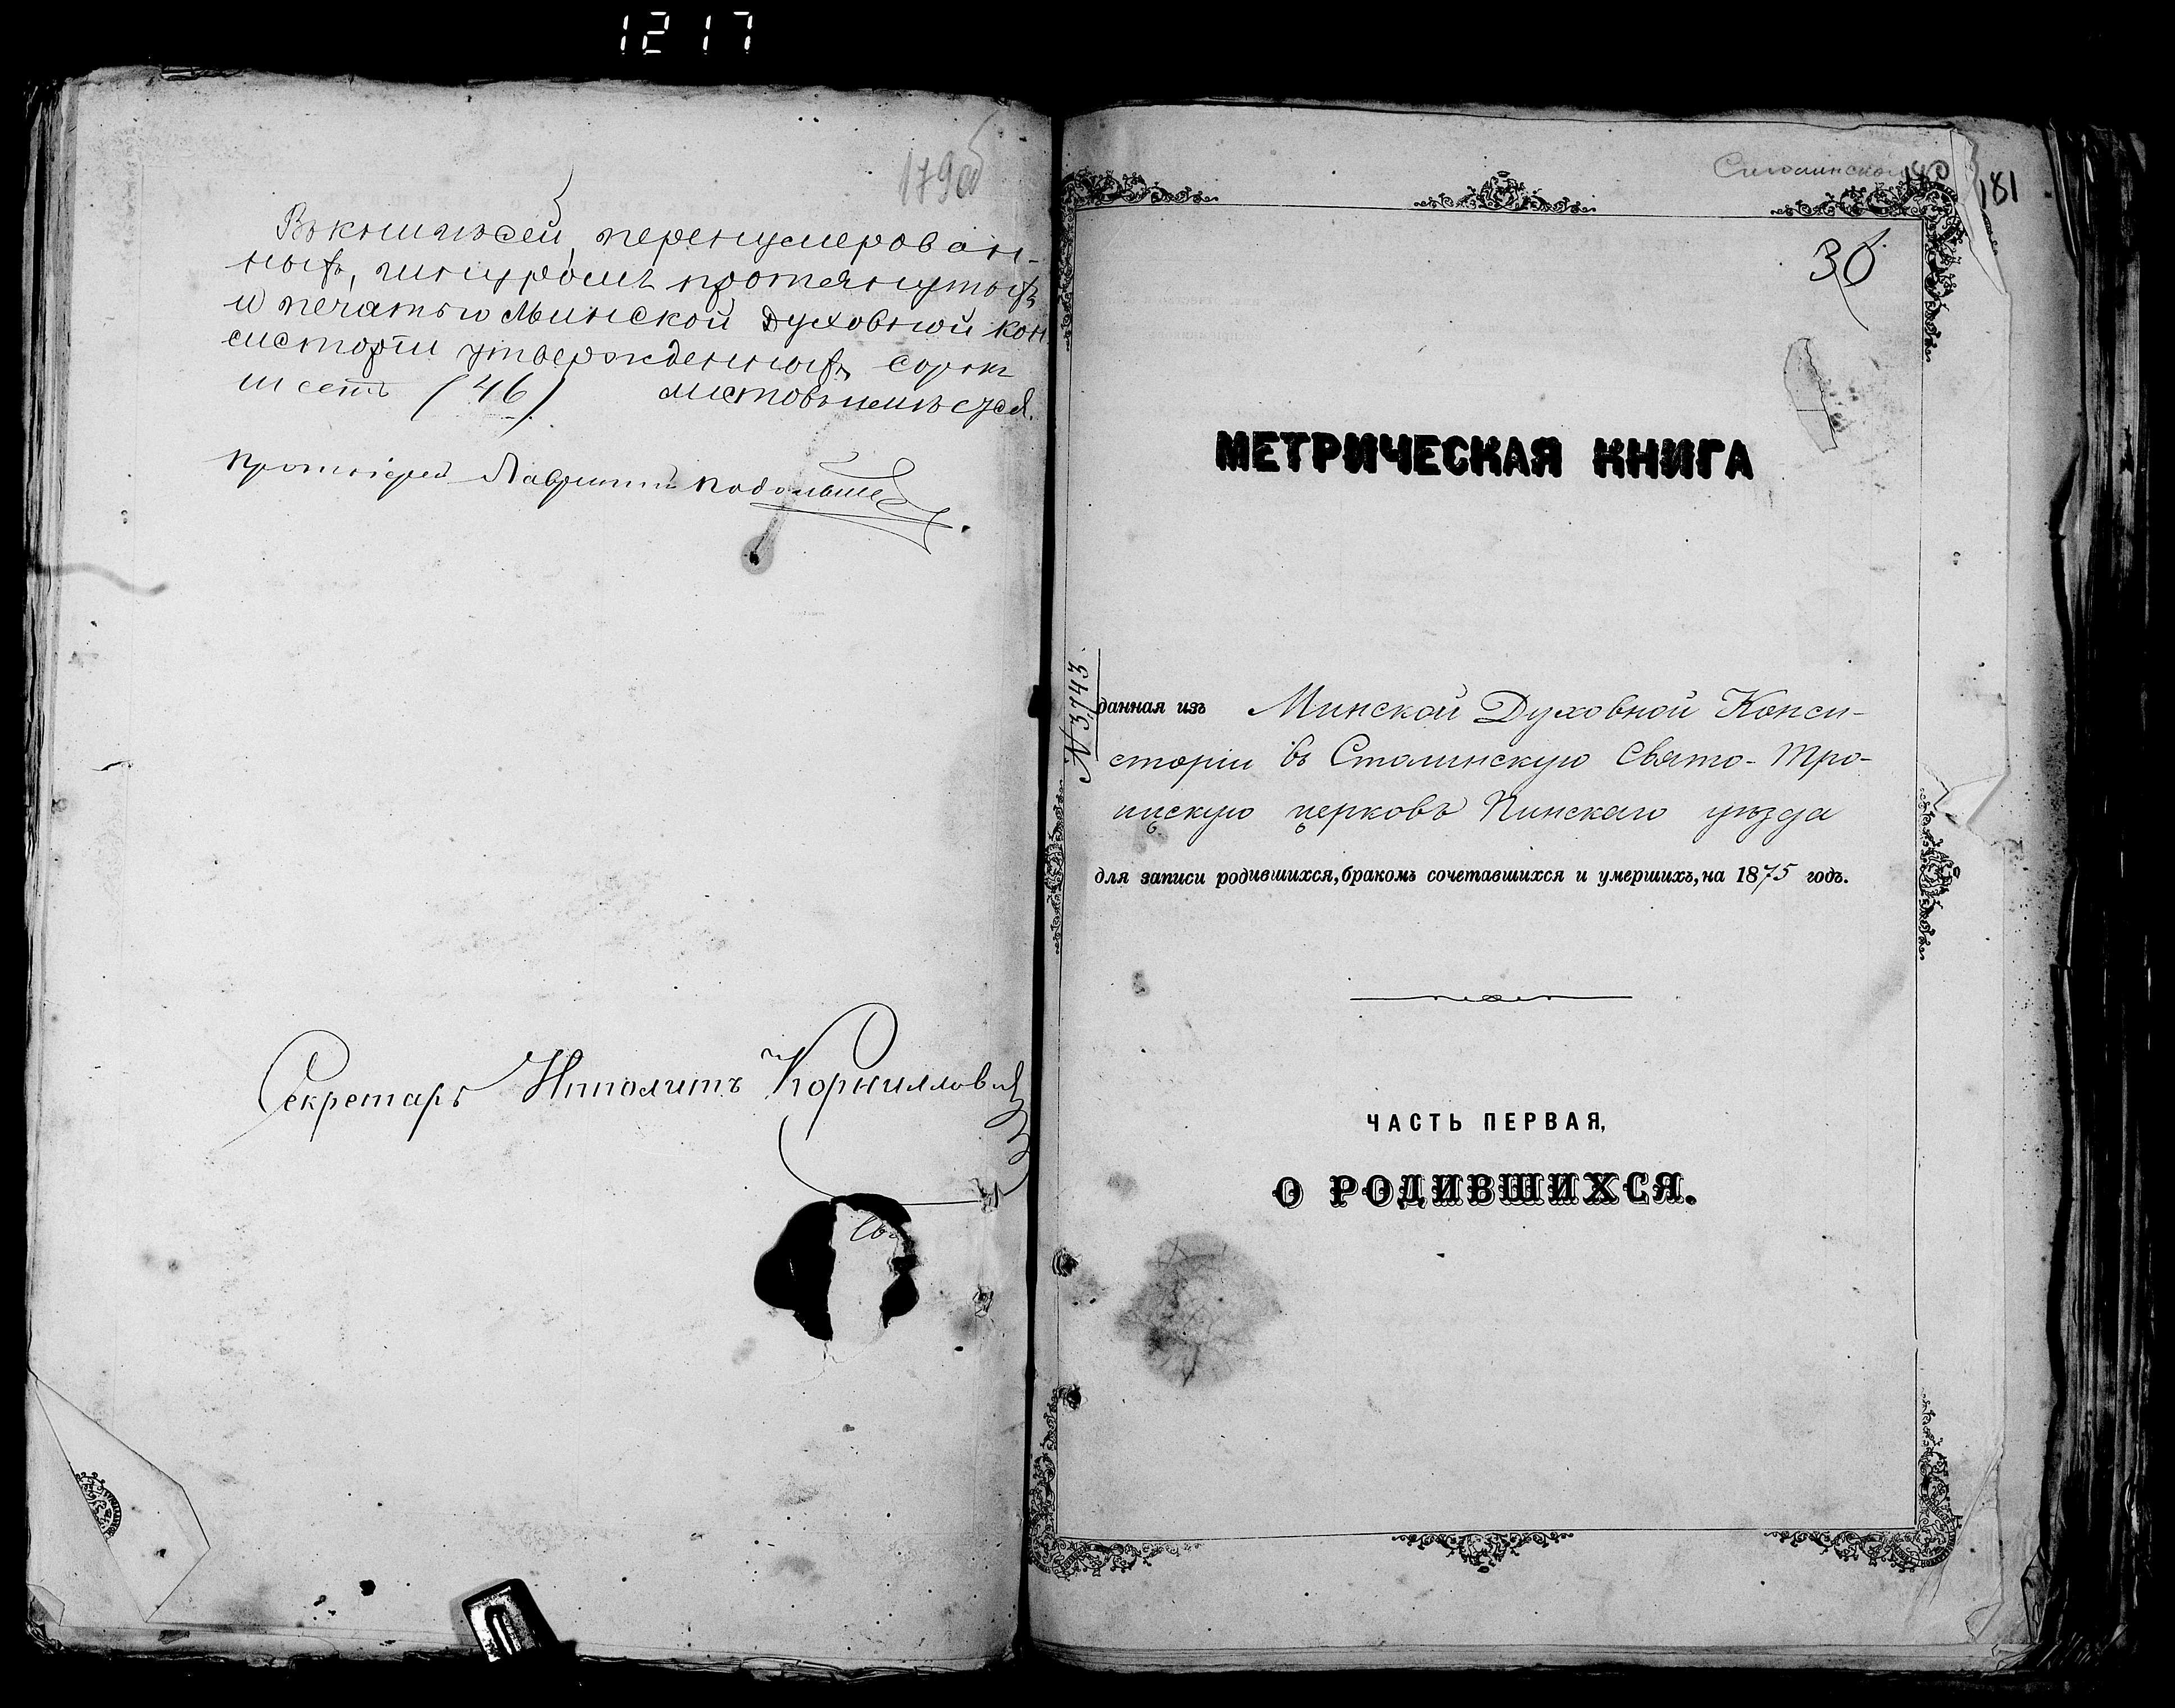 1217
179об
Въ книгѣ сей, перенумерован-
ныхъ, шнуромъ протянутыхъ
и печатью Минской Духовной Кон
систоріи утвержденныхъ сорокъ
шесть (46) листовъ имѣется.
Протоіерей
Секретарь Ипполитъ Корнилловичъ
Столинской 180
181
30
МЕТРИЧЕСКАЯ КНИГА
№ 3,743.
данная изъ Минской Духовной Конси-
сторіи въ Столинскую Свято-Тро-
ицкую церковь Пинскаго уѣзда
для записи родившихся, бракомъ сочетавшихся и умершихъ, на 1875 годъ.
ЧАСТЬ ПЕРВАЯ,
О РОДИВШИХСЯ.